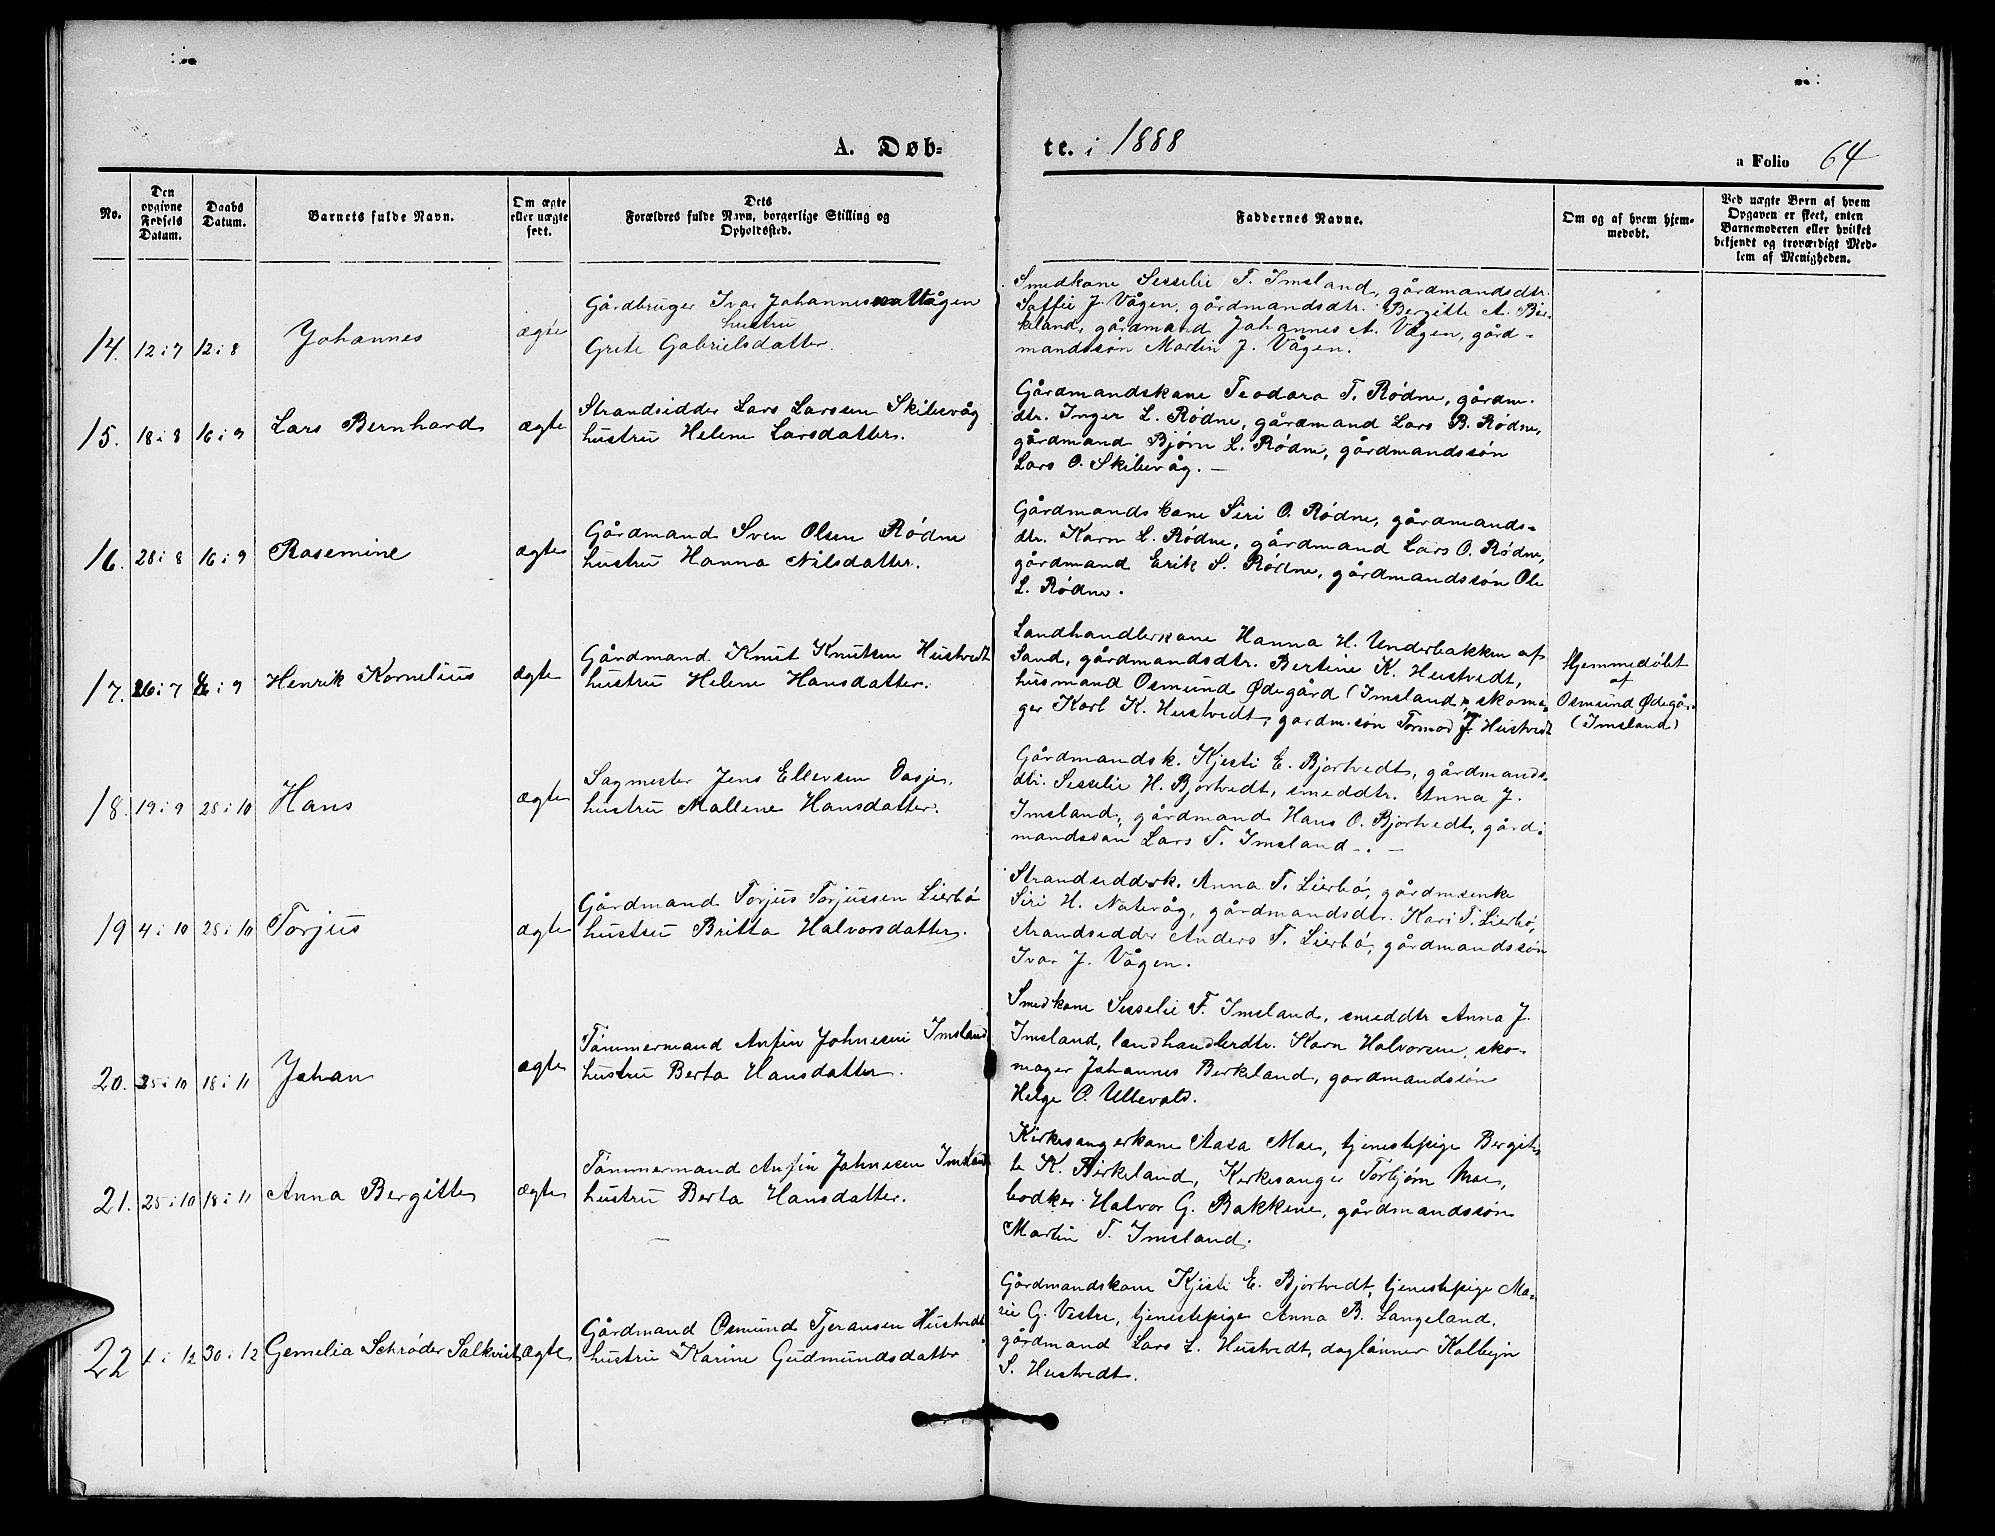 A. Døb-
te. i 1888
a Folio 64
No.
Den opgivne Fødsels Datum.
Daabs Datum.
Barnets fulde Navn.
Om ægte eller uægte født.
Dets Forældres fulde Navn, borgerlige Stilling og Opholdssted.
Faddernes Navne.
Om og af hvem hjemmedøbt.
Ved uægte Børn af hvem Opgaven er skeet, enten Barnemoderen eller hvilket bekjendt og troværdigt Medlem af Menigheden.
14. 12 i 7 12 i 8 Johannes ægte
Gårdbruger Ivar Johannesen Vågen
hustru
Grete Gabrielsdatter.
Smedkone Sesselie T. Imsland, gårdmandsdtr.
Saffie J. Vågen, gårdmandsdtr. Bergitte A. Bir-
keland, gårdmand Johannes A. Vågen, gård-
mandssøn Martin J. Vågen.
15. 18 i 8 16 i 9 Lars Bernhard ægte
Strandsidder Lars Larssen Skibevåg
hustru Helene Larsdatter.
Gårdmandskone Teodora T. Rødne, gårdm.
dtr. Inger L. Rødne, gårdmand Lars B. Rødne,
gårdmand Bjørn L. Rødne, gårdmandssøn
Lars O. Skibevåg. —
16. 28 i 8 16 i 9 Rasemine ægte
Gårdmand Sven Olsen Rødne
hustru Hanna Nilsdatter.
Gårdmandskone Siri O. Rødne, gårdmands-
dtr. Karn L. Rødne, gårdmand Lars O. Rødne,
gårdmand Erik S. Rødne, gårdmandssøn Ole
L. Rødne.
17. 26 i 7 i 9 Henrik Kornelius ægte
Gårdmand Knut Knutsen Hustvedt
hustru Helene Hansdatter.
Landhandlerkone Hanna H. Underbakken af
Sand, gårdmandsdtr. Bertine K. Hustvedt,
husmand Osmund Ødegård (Imsland), skoma-
ger Karl K. Hustvedt, gardm.søn Tormod J. Hustvedt
Hjemmedøbt
af
Osmund Ødegår.
(Imsland)
18. 19 i 9 28 i 10 Hans ægte
Sagmester Jens Ellevsen Oasje,
hustru Mallene Hansdatter.
Gårdmandsk. Kjesti E. Bjortvedt, gårdmands-
dtr. Sesselie H. Bjortvedt, smeddtr. Anna J.
Imsland, gårdmand Hans O. Bjortvedt, gård-
mandssøn Lars T. Imsland. —
19 4 i 10 28 i 10 Torjus ægte
Gårdmand Torjus Torjussen Lierbø
hustru Britta Halvorsdatter.
Strandsidderk. Anna T. Lierbø, gårdmsenke
Siri H. Natevåg, gårdmandsdtr. Kari T. Lierbø,
strandsidder Anders T. Lierbø, gårdmandssøn
Ivar J. Vågen.
20. 25 i 10 18 i 11 Johan ægte
Tømmermand Anfin Johnesen Imsland
hustru Berta Hansdatter.
Smedkone Sesselie T. Imsland, smeddtr Anna J.
Imsland, landhandlerdtr. Karn Halvorsen, sko-
mager Johannes Berkeland, gardmandssøn
Helge O. Ullevold.
21. 25 i 10 18 i 11 Anna Bergitte ægte
Tømmermand Anfin Johnesen Imsland
hustru Berta Hansdatter.
Kirkesangerkone Aasa Moe, tjenestepige Bergit-
te K. Birkeland, Kirkesanger Torbjørn Moe,
bødker Halvor G. Bakkene, gårdmandssøn
Martin T. Imsland.
22 1 i 12 30 i 12 Gemelia Schrøder Salkvist ægte
Gårdmand Osmund Tjeransen Hustvedt
hustru Karine Gudmundsdatter
Gårdmandskone Kjesti E. Bjortvedt, tjenestepige Ma-
rie G. Vestre, tjenestepige Anna B. Langeland,
gårdmand Lars L. Hustvedt, daglønner Kolbejn
S. Hustvedt.